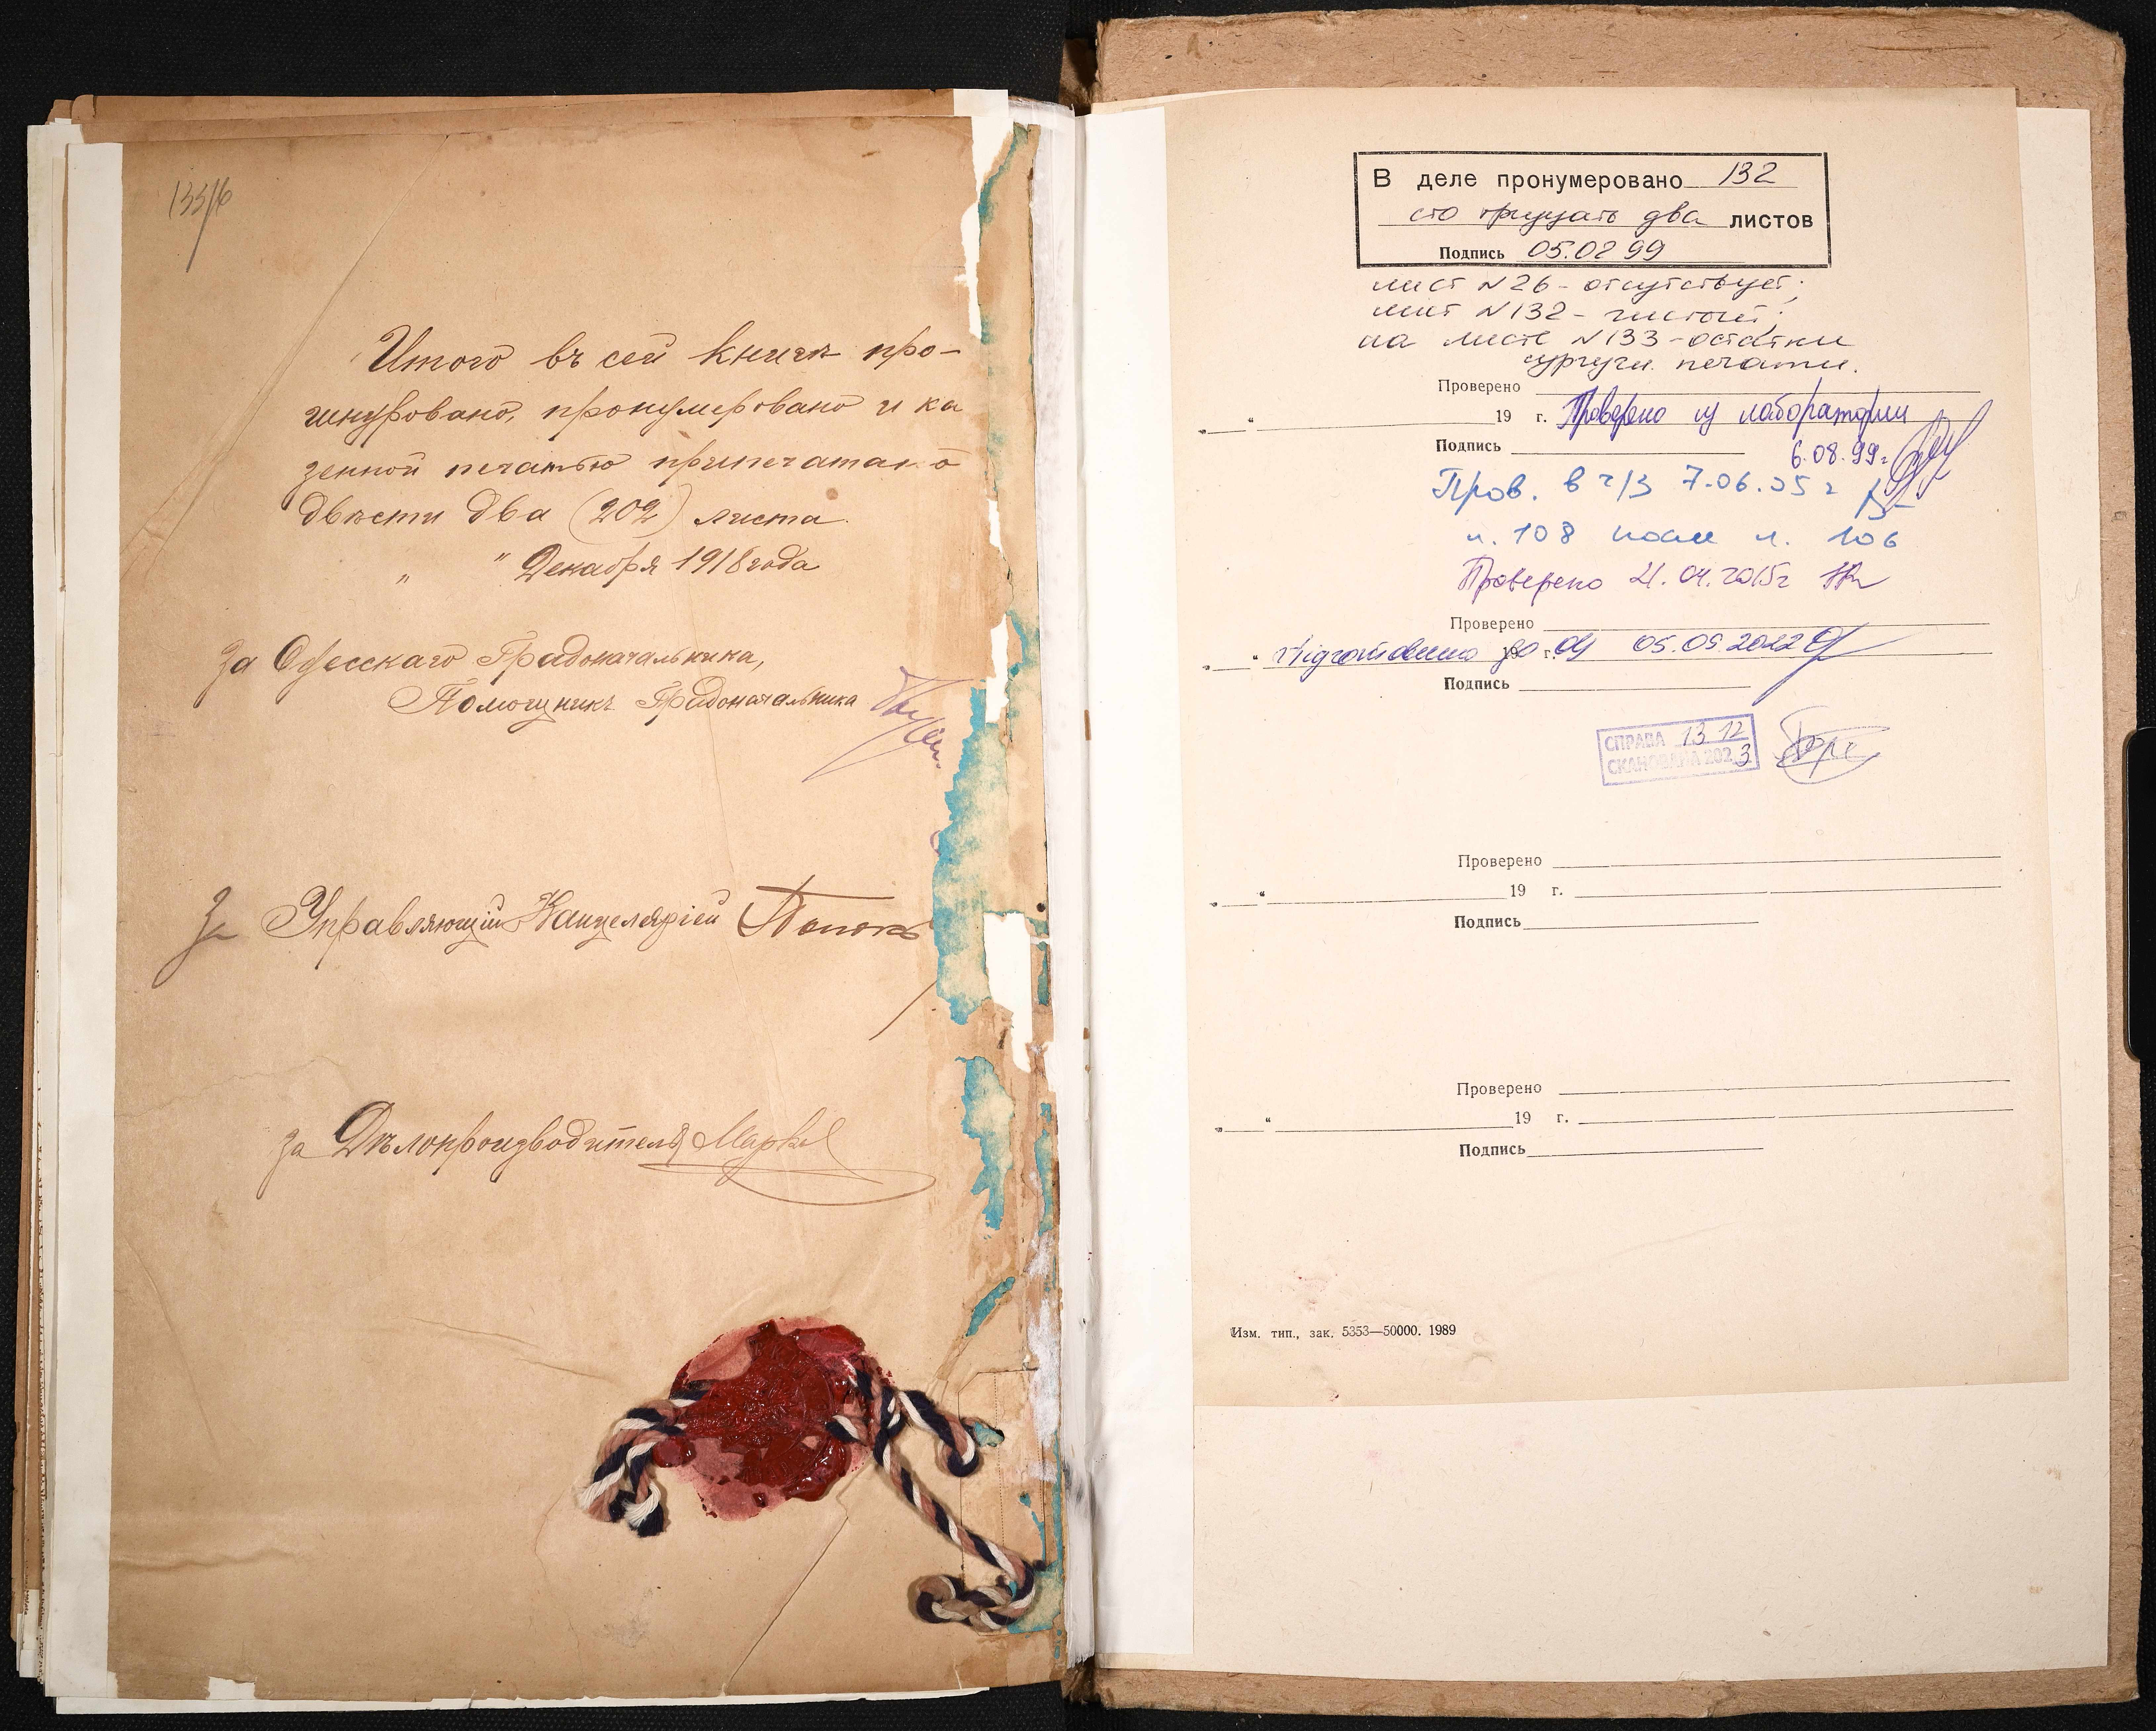 Итого въ сей книгѣ про-
шнуровано, пронумеровано и ка
зенной печатью припечатано
двѣсти два (202) листа.
„ " Декабря 1918 года
За Одесскаго Градоначальника,
Помощникъ Градоначальника
За Управляющій Канцеляріей
За Дѣлопроизводителя
В деле пронумеровано 132
сто тридцать два листов
Подпись 05.08 99
лист N 26 - отсутствует;
лист N 132 - чистый;
на листе N 133 - остатки
сургучн. печати.
Проверено
„ “ 19 г. Проверено из лаборатории
Подпись 6.08.99г.
Пров. в ч/з 7.06.05 г
л. 108 после л. 106
Проверено 21.04.2015г
Проверено
„ “ 19 г. Підготовлено до 05.05.2022
Подпись
СПРАВА 13 12
СКАНОВАНА 2023
Проверено
„ “ 19 г.
Подпись
Проверено
„ “ 19 г.
Подпись
Изм. тип., зак. 5353—50000. 1989